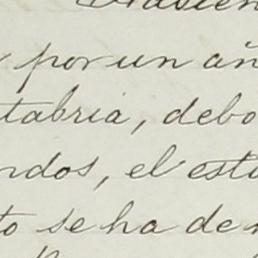 por un añ
tabria, debo
ndos, el est
to se ha de